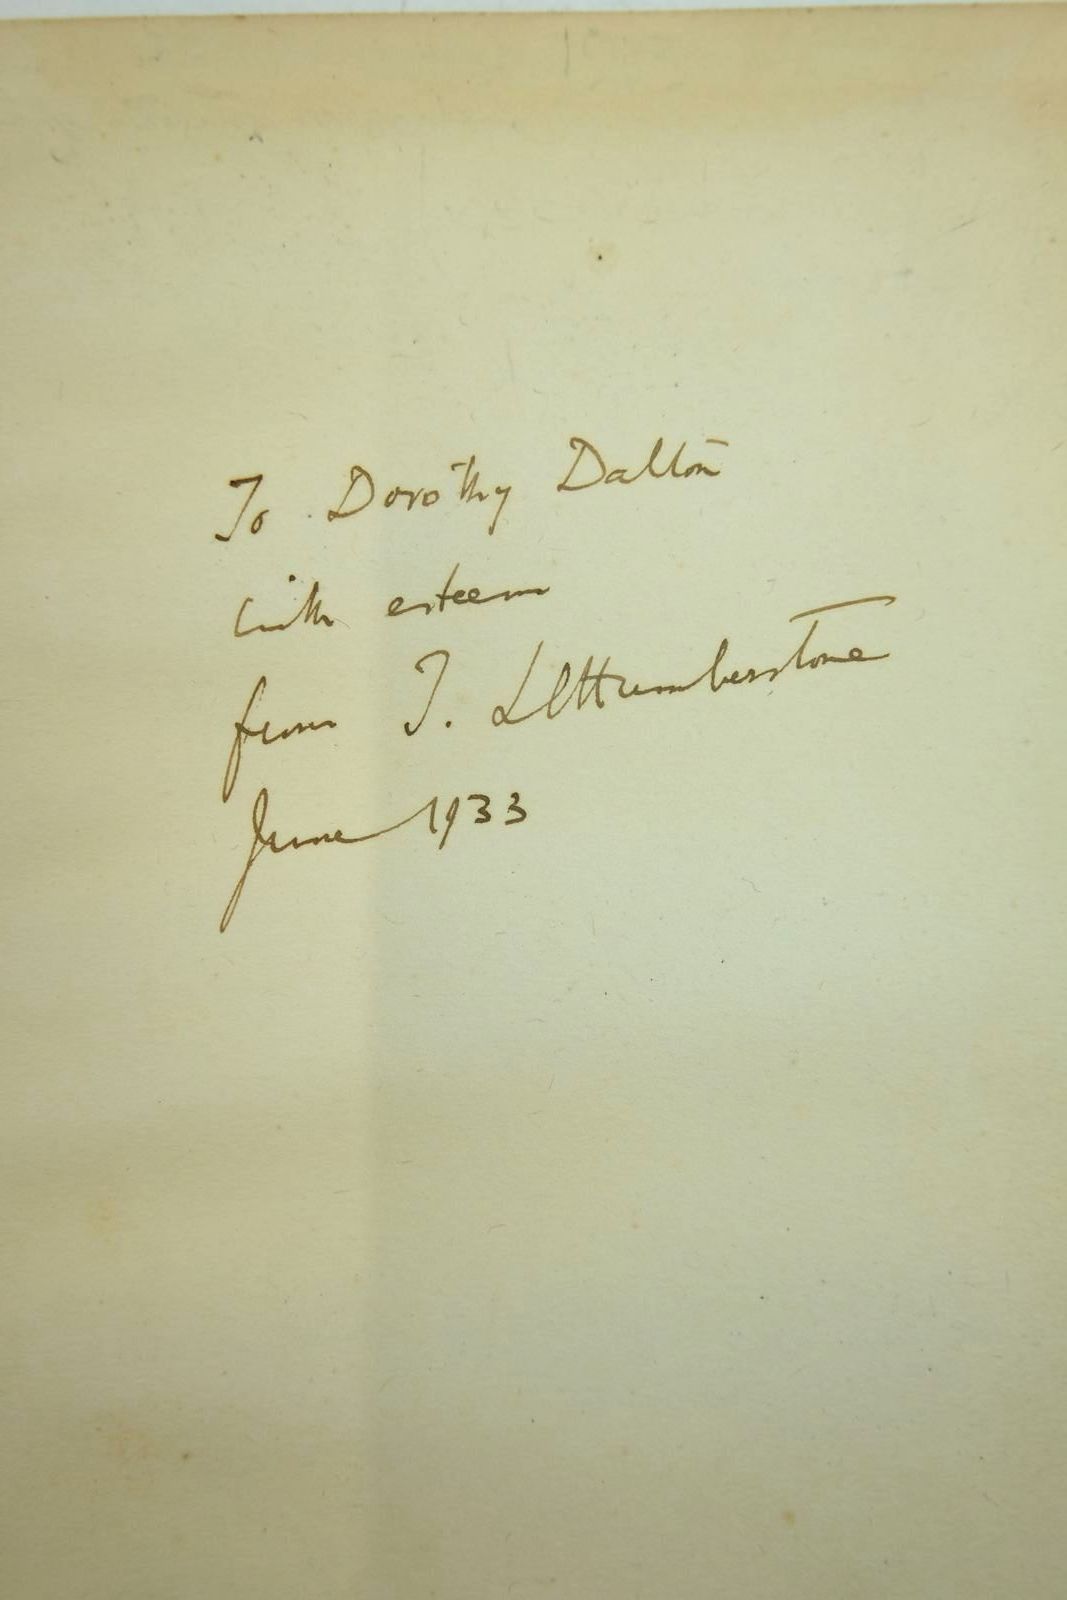 To Dorothy Dalton
with esteem
from T. Ll Humberstone
June 1933